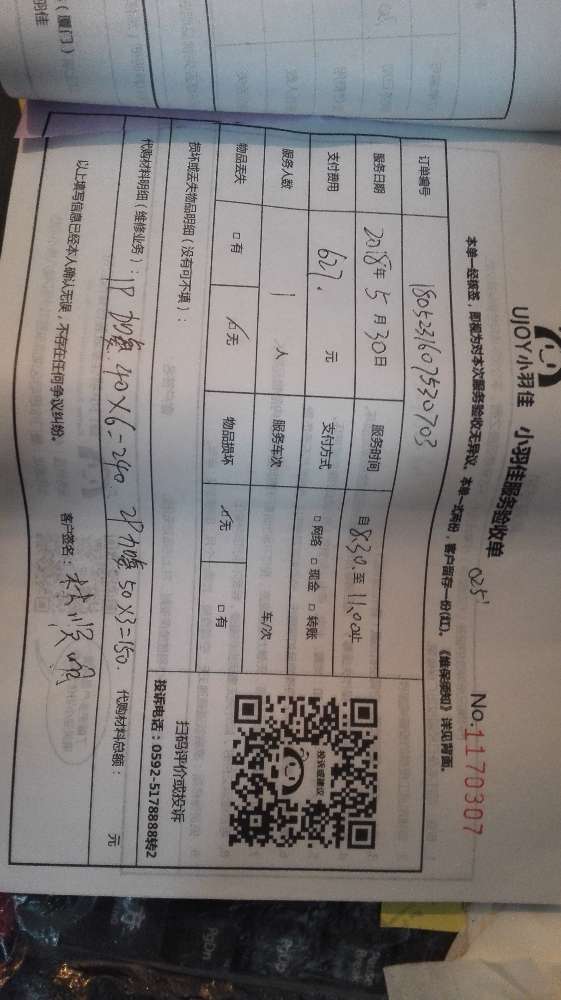 UJOY小羽佳 小羽佳服务验收单 025 No.1170307
本单一经核签，即视为对本次服务验收无异议，本单一式两份，客户留存一份(红)。《维保须知》详见背面。
订单编号 180523160753070​3
服务日期 2018年5月30日 服务时间 自8:30至11:00止
支付费用 627. 元 支付方式 □网络 □现金 □转账
服务人数 1 人 服务车次 车/次
物品丢失 □有 □无 物品损坏 □无 □有
损坏或丢失物品明细（没有可不填）：
代购材料明细（维修业务）：1P 加氨 40×6=240. 2P加氨 50×3=150. 代购材料总额： 元
以上填写信息已经本人确认无误，不存在任何争议纠纷。 客户签名：
投诉或建议
扫码评价或投诉
投诉电话：0592-5178888转2
（厦门）
羽佳
PgDn
PgUp